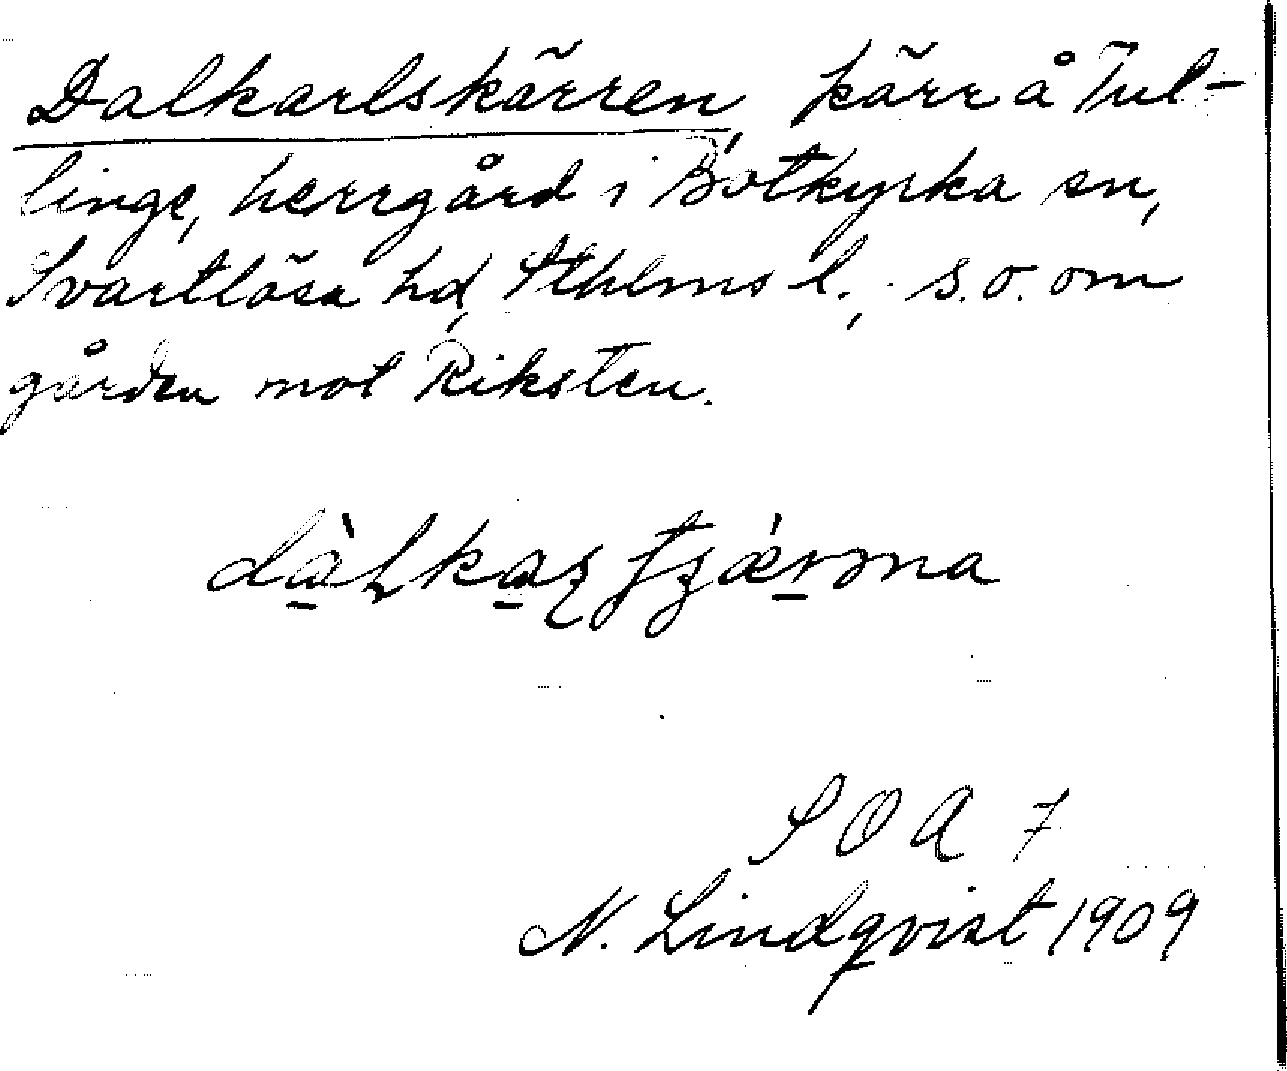 Dalkarlskärren, kärr å Tul-
linge, herrgård i Botkyrka sn,
Svartlösa hd, Sthlms l., s.o. om
gården mot Riksten.
S O A 7
N. Lindqvist 1909